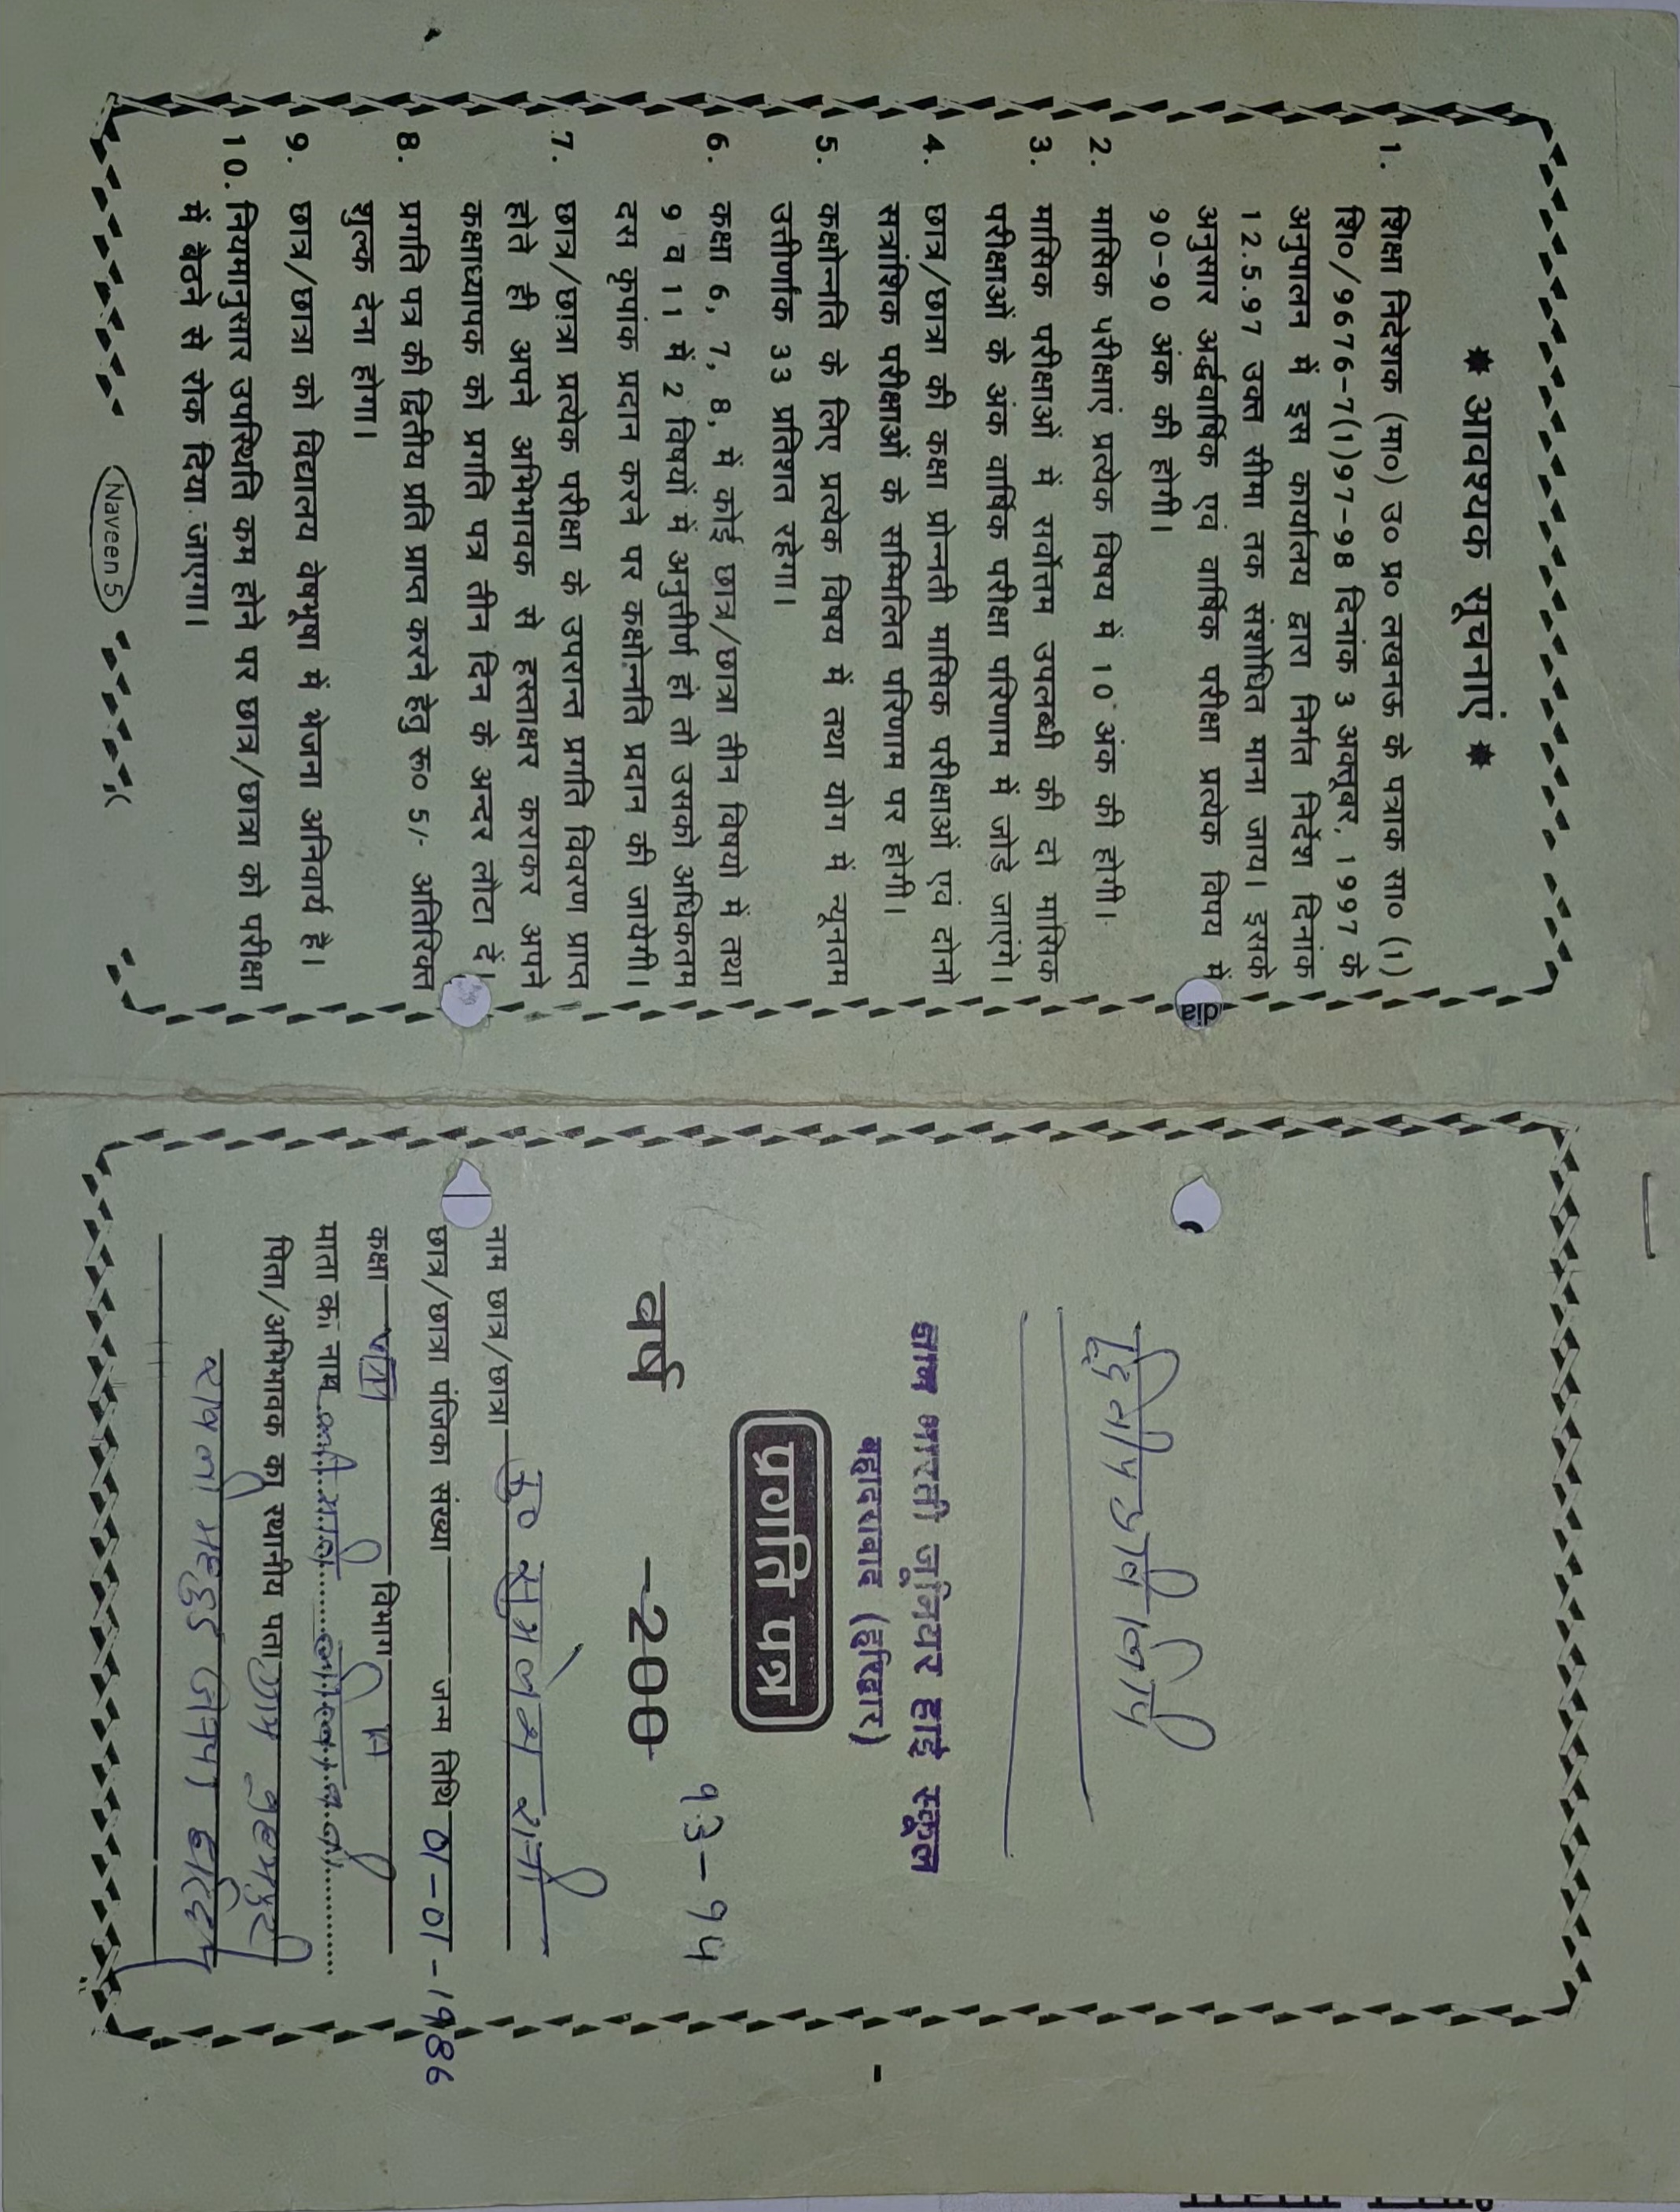 ✷ आवश्यक सूचनाएं ✷
1. शिक्षा निदेशक (मा०) उ० प्र० लखनऊ के पत्रांक सा० (1)
शि०/9676-7(1)97-98 दिनांक 3 अक्तूबर, 1997 के
अनुपालन में इस कार्यालय द्वारा निर्गत निर्देश दिनांक
12.5.97 उक्त सीमा तक संशोधित माना जाय। इसके
अनुसार अर्द्धवार्षिक एवं वार्षिक परीक्षा प्रत्येक विषय में
90-90 अंक की होगी।
2. मासिक परीक्षाएं प्रत्येक विषय में 10 अंक की होगी।
3. मासिक परीक्षाओं में सर्वोत्तम उपलब्धी की दो मासिक
परीक्षाओं के अंक वार्षिक परीक्षा परिणाम में जोड़े जाएंगे।
4. छात्र/छात्रा की कक्षा प्रोन्नती मासिक परीक्षाओं एवं दोनो
सत्रांशिक परीक्षाओं के सम्मिलित परिणाम पर होगी।
5. कक्षोन्नति के लिए प्रत्येक विषय में तथा योग में न्यूनतम
उत्तीर्णांक 33 प्रतिशत रहेगा।
6. कक्षा 6, 7, 8, में कोई छात्र/छात्रा तीन विषयो में तथा
9 व 11 में 2 विषयों में अनुत्तीर्ण हो तो उसको अधिकतम
दस कृपांक प्रदान करने पर कक्षोन्नति प्रदान की जायेगी।
7. छात्र/छात्रा प्रत्येक परीक्षा के उपरान्त प्रगति विवरण प्राप्त
होते ही अपने अभिभावक से हस्ताक्षर कराकर अपने
कक्षाध्यापक को प्रगति पत्र तीन दिन के अन्दर लौटा दें।
8. प्रगति पत्र की द्वितीय प्रति प्राप्त करने हेतु रू० 5/- अतिरिक्त
शुल्क देना होगा।
9. छात्र/छात्रा को विद्यालय वेषभूषा में भेजना अनिवार्य है।
10. नियमानुसार उपस्थिति कम होने पर छात्र/छात्रा को परीक्षा
में बैठने से रोक दिया जाएगा।
Naveen 5
dia
द्वितीय प्रतिलिपि
ज्ञान भारती जूनियर हाई स्कूल
बहादराबाद (हरिद्वार)
प्रगति पत्र
वर्ष -200 93-94
नाम छात्र/छात्रा कु०
छात्र/छात्रा पंजिका संख्या जन्म तिथि 01-01-1986
कक्षा विभाग
माता का नाम श्रीमति
पिता/अभिभावक का स्थानीय पता ग्राम